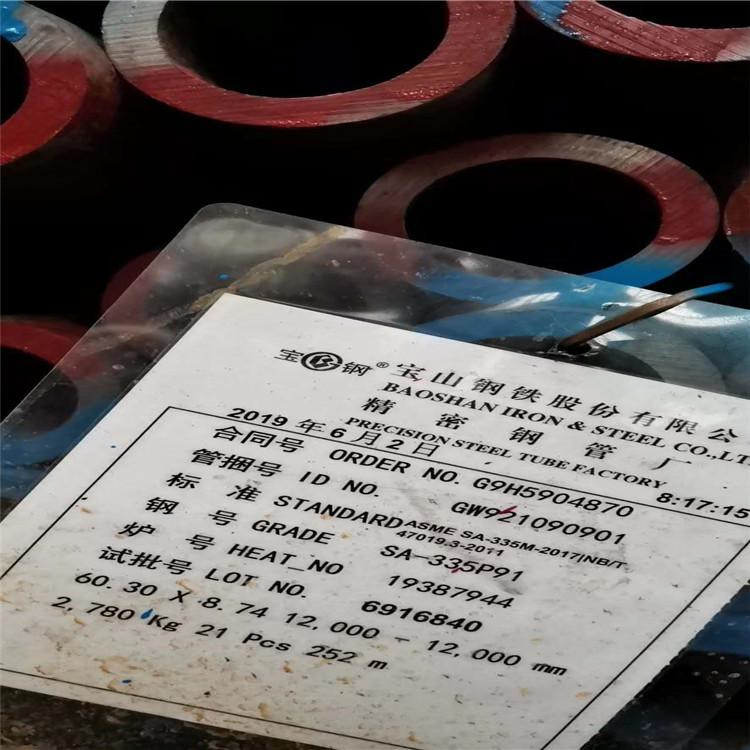 宝钢® 宝山钢铁股份有限公
BAOSHAN IRON & STEEL CO.,LT
精密钢管厂
PRECISION STEEL TUBE FACTORY
2019 年 6 月 2 日 8:17:15
合同号 ORDER NO. G9H5904870
管捆号 ID NO. GW921090901
标 准 STANDARD ASME SA-335M-2017|NB/T
47019.3-2011
钢 号 GRADE SA-335P91
炉 号 HEAT_NO 19387944
试批号 LOT NO. 6916840
60.30 X 8.74 12,000 - 12,000 mm
2,780 Kg 21 Pcs 252 m